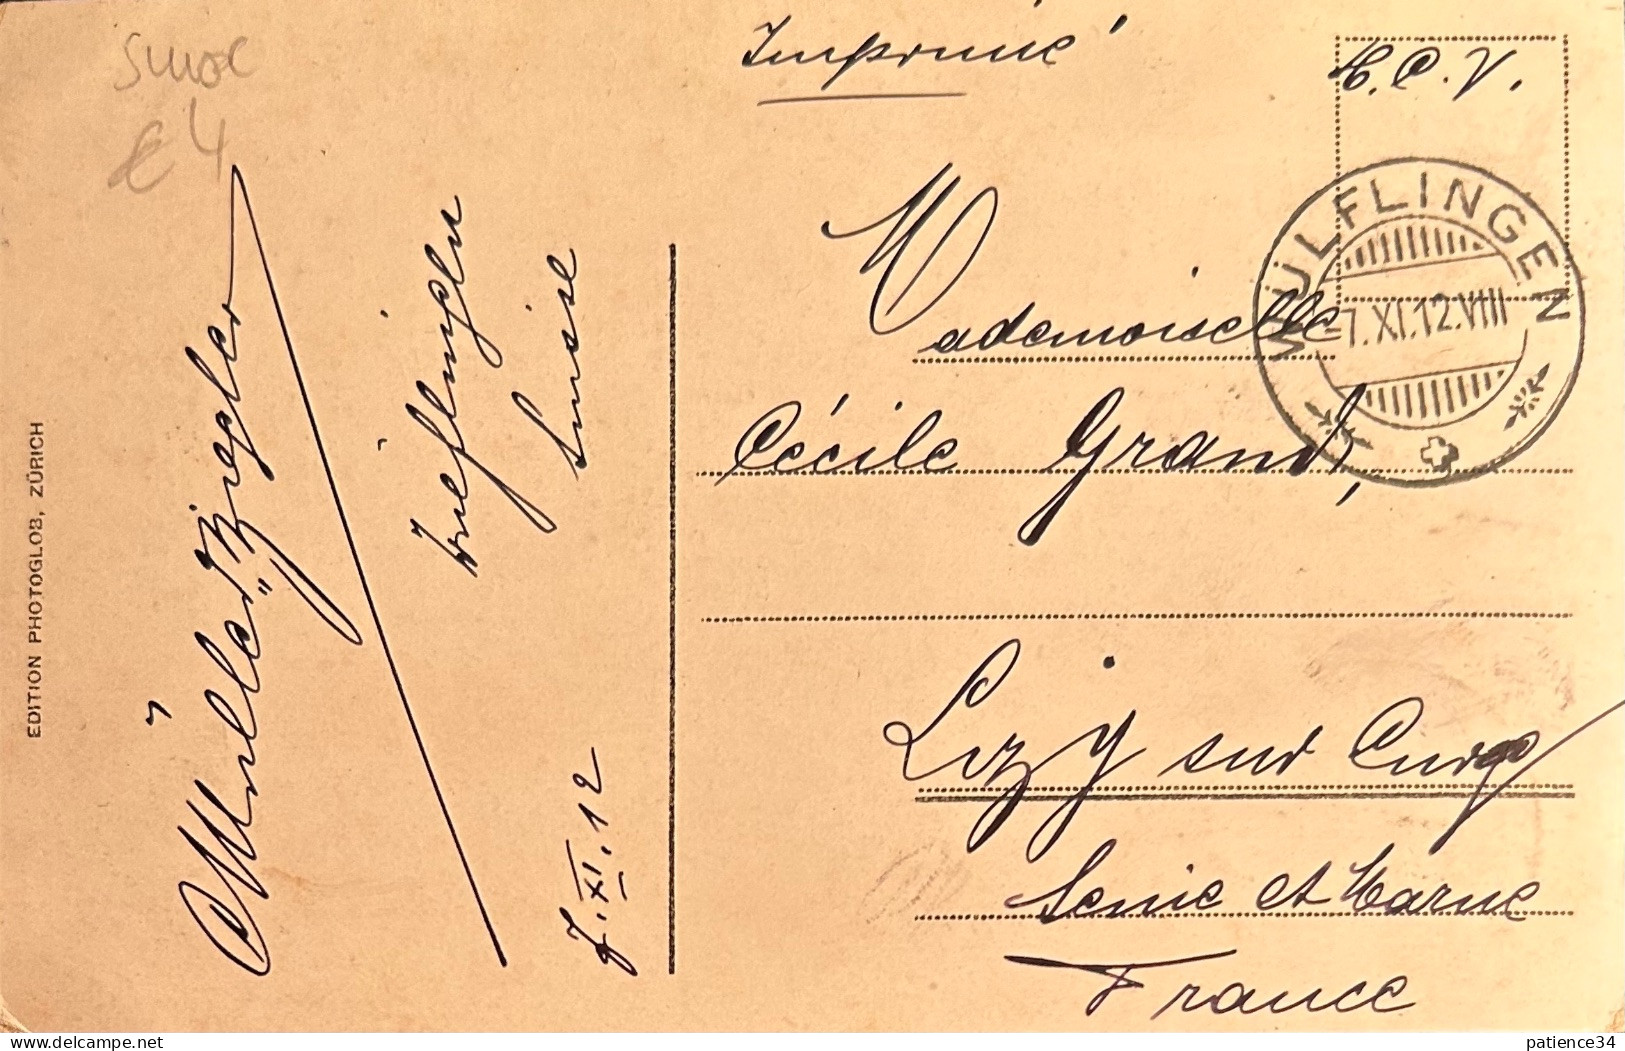 Imprimé
T.C.V.
WÜLFLINGEN
-7.XI.12.VIII
Mademoiselle
Cécile Grand,
Lizy sur Ourcq
Seine et Marne
France
Müller-Ziegler
Wülflingen
Suisse
7.XI.12
EDITION PHOTOGLOB, ZÜRICH
€4
delcampe.net
patience34